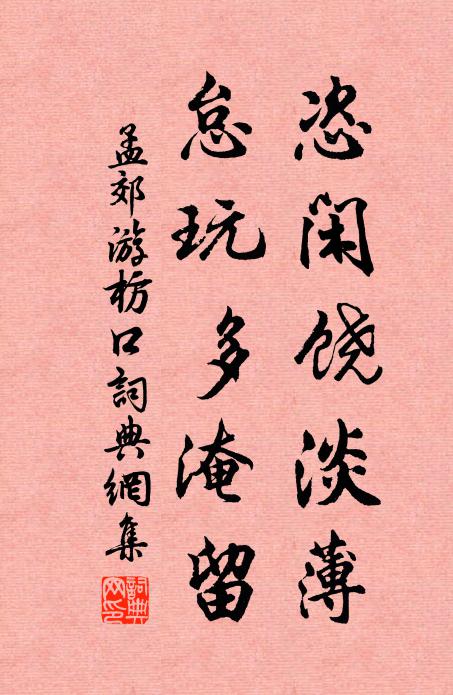 恣闲饶淡薄
怠玩多淹留
孟郊游枋口詞典網集
詞典网印